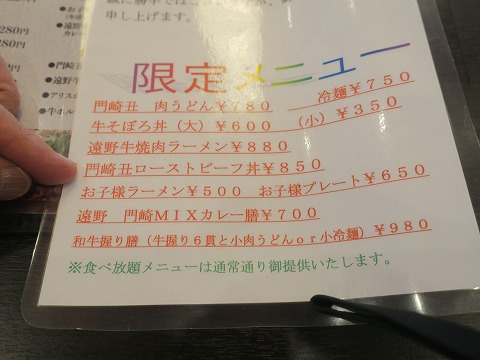 申し上げます。
限定メニュー
門崎丑 肉うどん￥780 冷麺￥750
牛そぼろ丼（大）￥600 （小）￥350
遠野牛焼肉ラーメン￥880
門崎丑ローストビーフ丼￥850
お子様ラーメン￥500 お子様プレート￥650
遠野 門崎ＭＩＸカレー膳￥700
和牛握り膳（牛握り６貫と小肉うどんｏｒ小冷麺）￥980
※食べ放題メニューは通常通り御提供いたします。